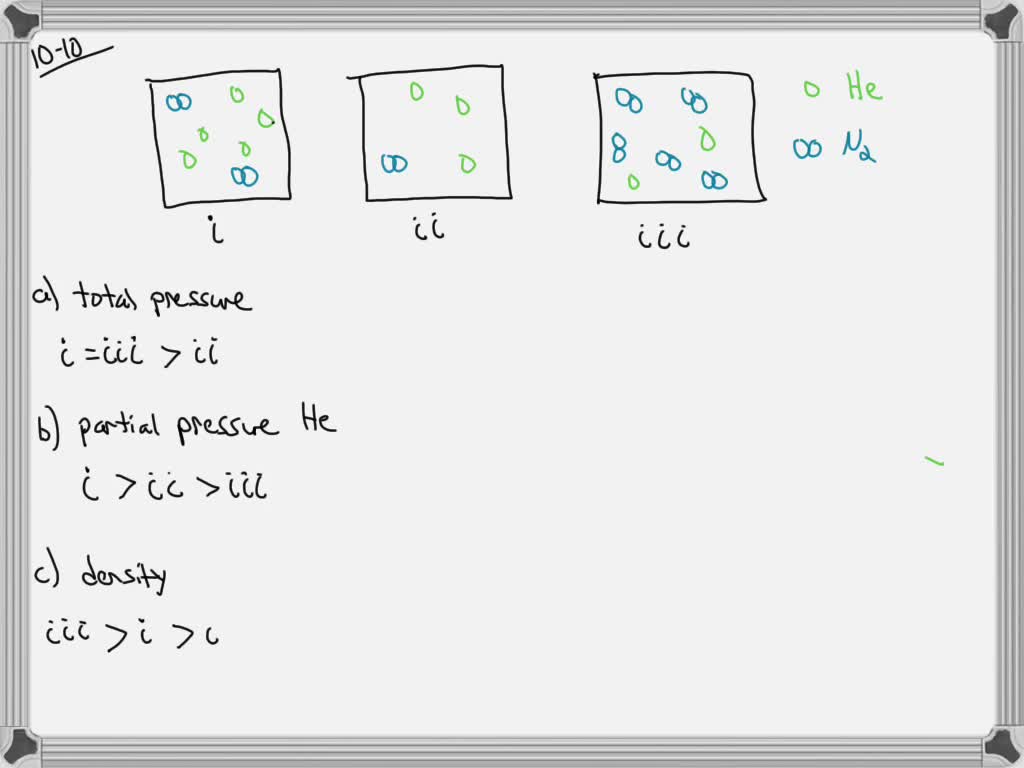 10-10
He
N2
i
ii
iii
a) total pressure
i = iii > ii
b) partial pressure He
i > ii > iii
c) density
iii > i > i